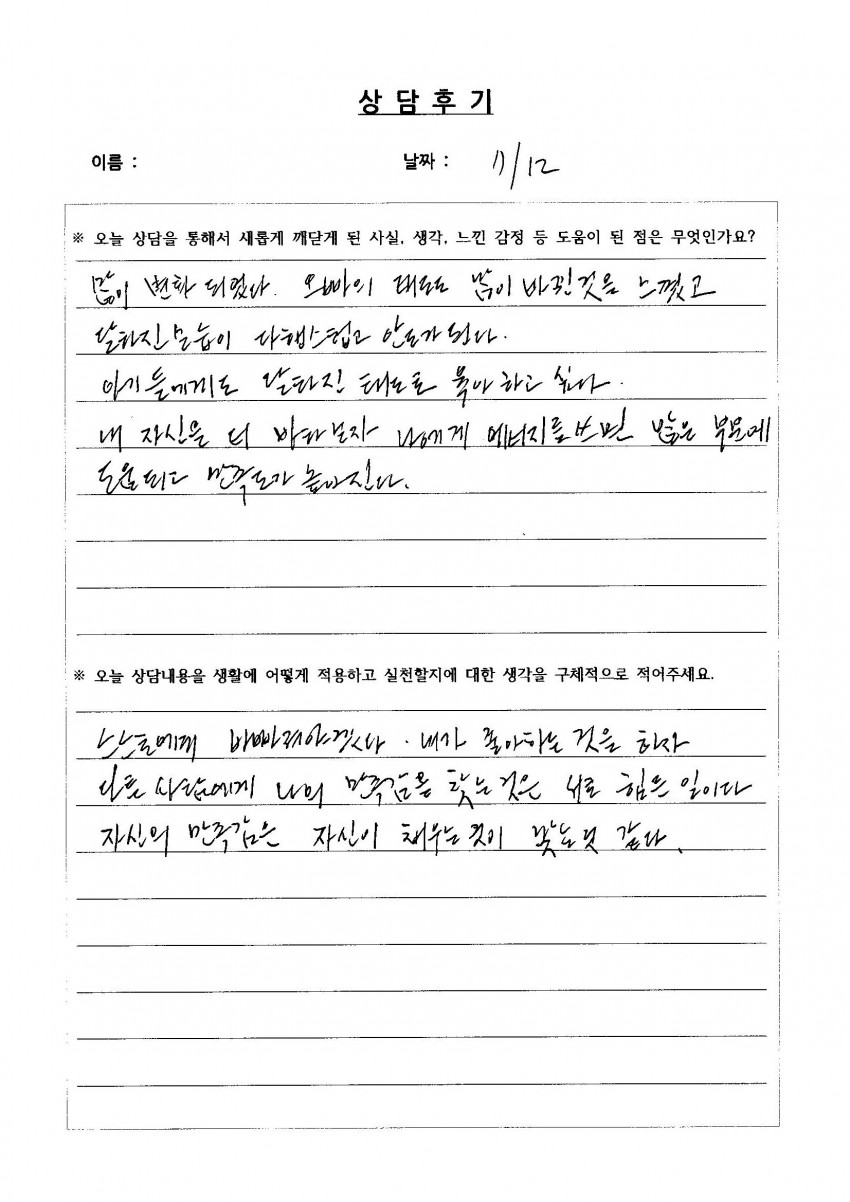 상 담 후 기
이름 : 날짜 : 11/12
※ 오늘 상담을 통해서 새롭게 깨닫게 된 사실, 생각, 느낀 감정 등 도움이 된 점은 무엇인가요?
많이 변화 되었다. 오빠의 태도도 많이 바뀐것을 느꼈고
달라진모습이 다행스럽고 안도가 된다.
아기들에게도 달라진 태도로 육아하고 싶다.
내 자신을 더 바라보자 나에게 에너지를쓰면 많은 부분에
도움되고 만족도가 높아진다.
※ 오늘 상담내용을 생활에 어떻게 적용하고 실천할지에 대한 생각을 구체적으로 적어주세요.
스스로에게 바빠져야겠다. 내가 좋아하는 것을 하자
다른 사람에게 나의 만족감을 찾는것은 서로 힘든 일이다
자신의 만족감은 자신이 채우는것이 맞는것 같다.